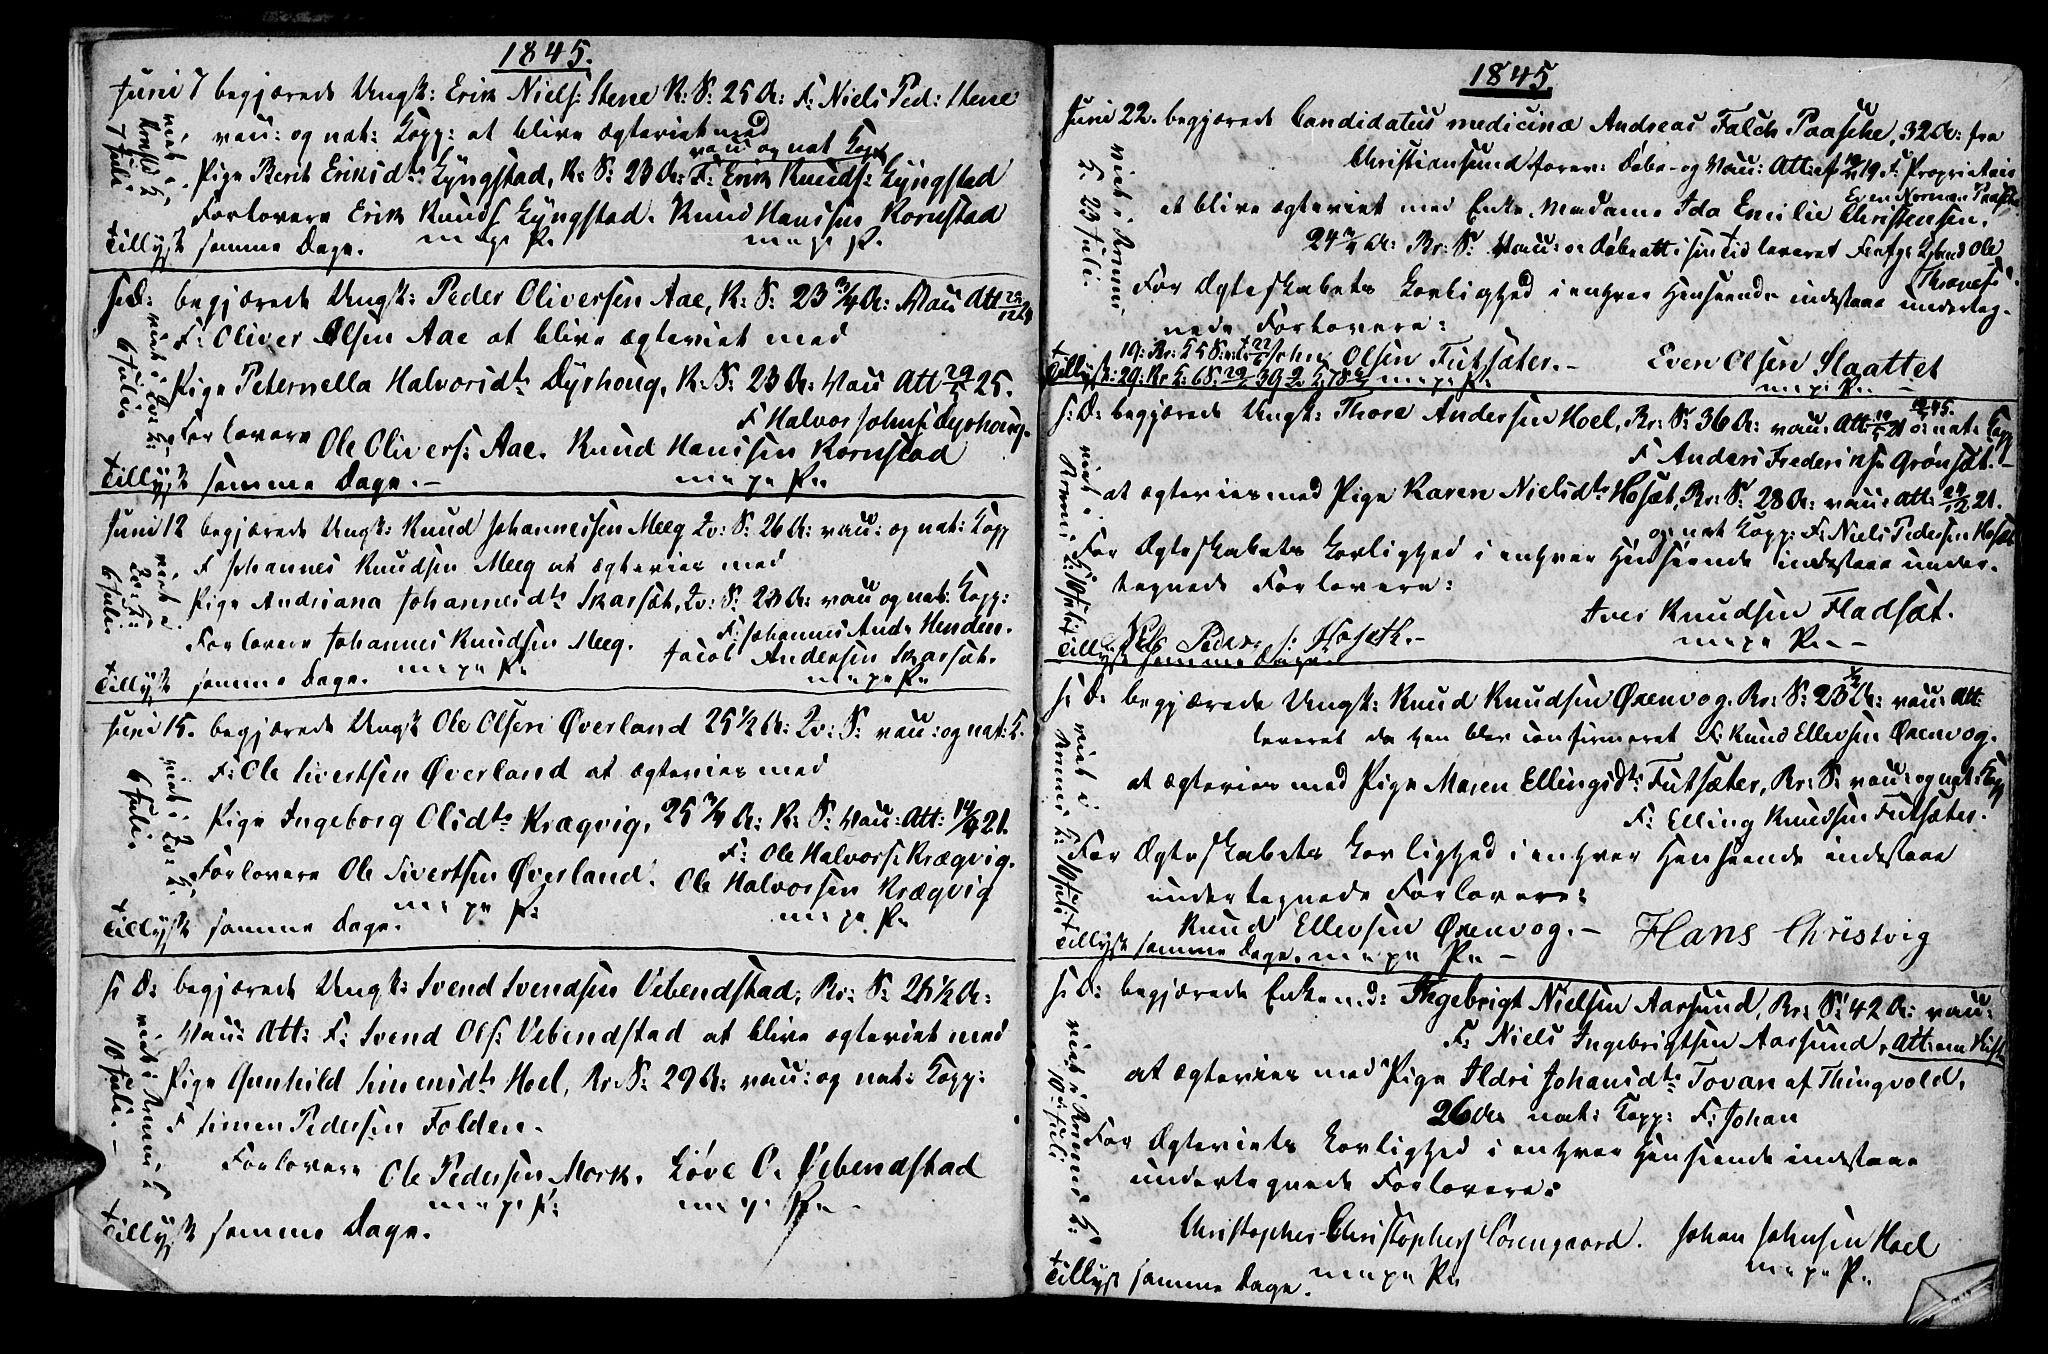 1845.
Juni 7 begjærede Ungk: Erik Niels: Stene K: S: 25 A: F: Niels Ped: Stene
vau: og nat: Kopp: at blive ægteviet med
vau og nat Kopp
Pige Berit Eriksdtr Gyngstad, K: S: 23 A: F: Erik Knuds: Gyngstad
Forlovere Erik Knuds Gyngstad. Knud Hanssen Kornstad
m. p. P. m. p. P.
Tillyst samme Dage.
viet i Kornst: K, 7 Juli
S: D: begjærede Ungk: Peder Oliversen Aae, K: S: 23 3/4 A: Vau Att
F: Oliver Olsen Aae at blive ægteviet med
Pige Peternella Halvorsdtr Dyrhoug, K: S: 23 A: Vau Att 25.
F Halvor Johns: Dyrhoug.
Forlovere Ole Olivers: Aae. Knud Hanssen Kornstad
Tillyst samme Dage.-
viet i Qv: K: 6 Juli
Juni 12 begjærede Ungk: Knud Johannessen Meeg Qv: S: 26 A: vau: og nat: Kopp
F Johannes Knudsen Meeg at ægtevies med
Pige Andriana Johannesdtr Skarsæt, Qv: S: 23 A: vau og nat: Kopp:
F: Johannes Ands Henden.
Forlovere Johannes Knudsen Meeg. Jacob Andersen Skarsæt.
Tillyst samme Dage.
viet i Qv: K: 6 Juli
Juni 15. begjærede Ungk Ole Olsen Øverland 25 1/2 A: Qv: S: vau: og nat: K.
F: Ole Sivertsen Øverland at ægtevies med
Pige Ingeborg Olsdtr Krægvig, 25 3/4 A: K: S: Vau: Att: 14/4 21.
F: Ole Halvors: Krægvig.
Forlovere Ole Sivertsen Øverland. Ole Halvorsen Krægvig
Tillyst samme Dage.
viet i Qv: K, 6 Juli
S: D: begjærede Ungk: Svend Svendsen Vebendstad, Br: S: 26 1/2 A:
Vau: Att: F: Svend Ols: Vebendstad at blive ægteviet med
Pige Gunhild Simensdtr Hoel, Br: S: 29 A: vau: og nat: Kopp:
F Simen Pedersen Folden.
Forlovere Ole Pedersen Mork. Løve O. Vebendstad
Tillyst samme Dage.
10 Juli.-
1845.
Juni 22. begjærede Candidatus medicinæ Andreas Falch Paasche, 32 A: fra
Christiansund forev: Døbe- og Vau: Att: af 19 F: Proprietair
Even Norman Paasche
at blive ægteviet med Enke Madame Ida Emilie Christensen,
24 3/4 A: Br: S: Vau: og Døbeatt: i sin Tid leveret
For Ægteskabets Lovlighed i enhver Henseende indestaae underteg-
nede Forlovere:
John Olsen Futsæter.- Even Olsen Slaattet
S: D: begjærede Ungk: Thore Andersen Hoel, Br: S: 36 A: vau: Att: 21 og nat: Kopp
F Anders Frederiksen Grønsæt.-
at ægtevies med Pige Karen Nielsdtr Hosæt, Br: S: 28 A: vau: Att: 21.
og nat Kopp: F: Niels Pedersen Hosæt
For Ægteskabets Lovlighed i enhver Henseende indestaae under-
tegnede Forlovere:
Niels Peders: Hoseth.- Iver Knudsen Fladsæt.
Tillyst samme Dage.
S: D: begjærede Ungk: Knud Knudsen Øxenvog. Br: S: 23 1/2 A: vau: Att:
leveret da han blev confirmeret F: Knud Ellevsen Øxenvog.
at ægtevies med Pige Maren Ellingsdtr Futsæter, Br: S: vau: og nat: Kopp
F: Elling Knudsen Futsæter.
For Ægteskabets Lovlighed i enhver Henseende indestaae
undertegnede Forlovere:
Knud Ellevsen Øxenvog.- Hans Christvig
Tillyst samme Dage.
S: D: begjærede Enkemd: Ingebrigt Nielsen Aarsund, Br: S: 42 A: vau:
F: Niels Ingebrigtsen Aarsund,
at ægtevies med Pige Ildri Johansdtr Tovan af Thingvold,
26 A: nat: Kopp: F: Johan
For Ægteviets Lovlighed i enhver Henseende indestaae
undertegnede Forlovere:
Christopher Christophers Sørengaard. Johan Johnsen Hoel
Tillyst samme Dage.